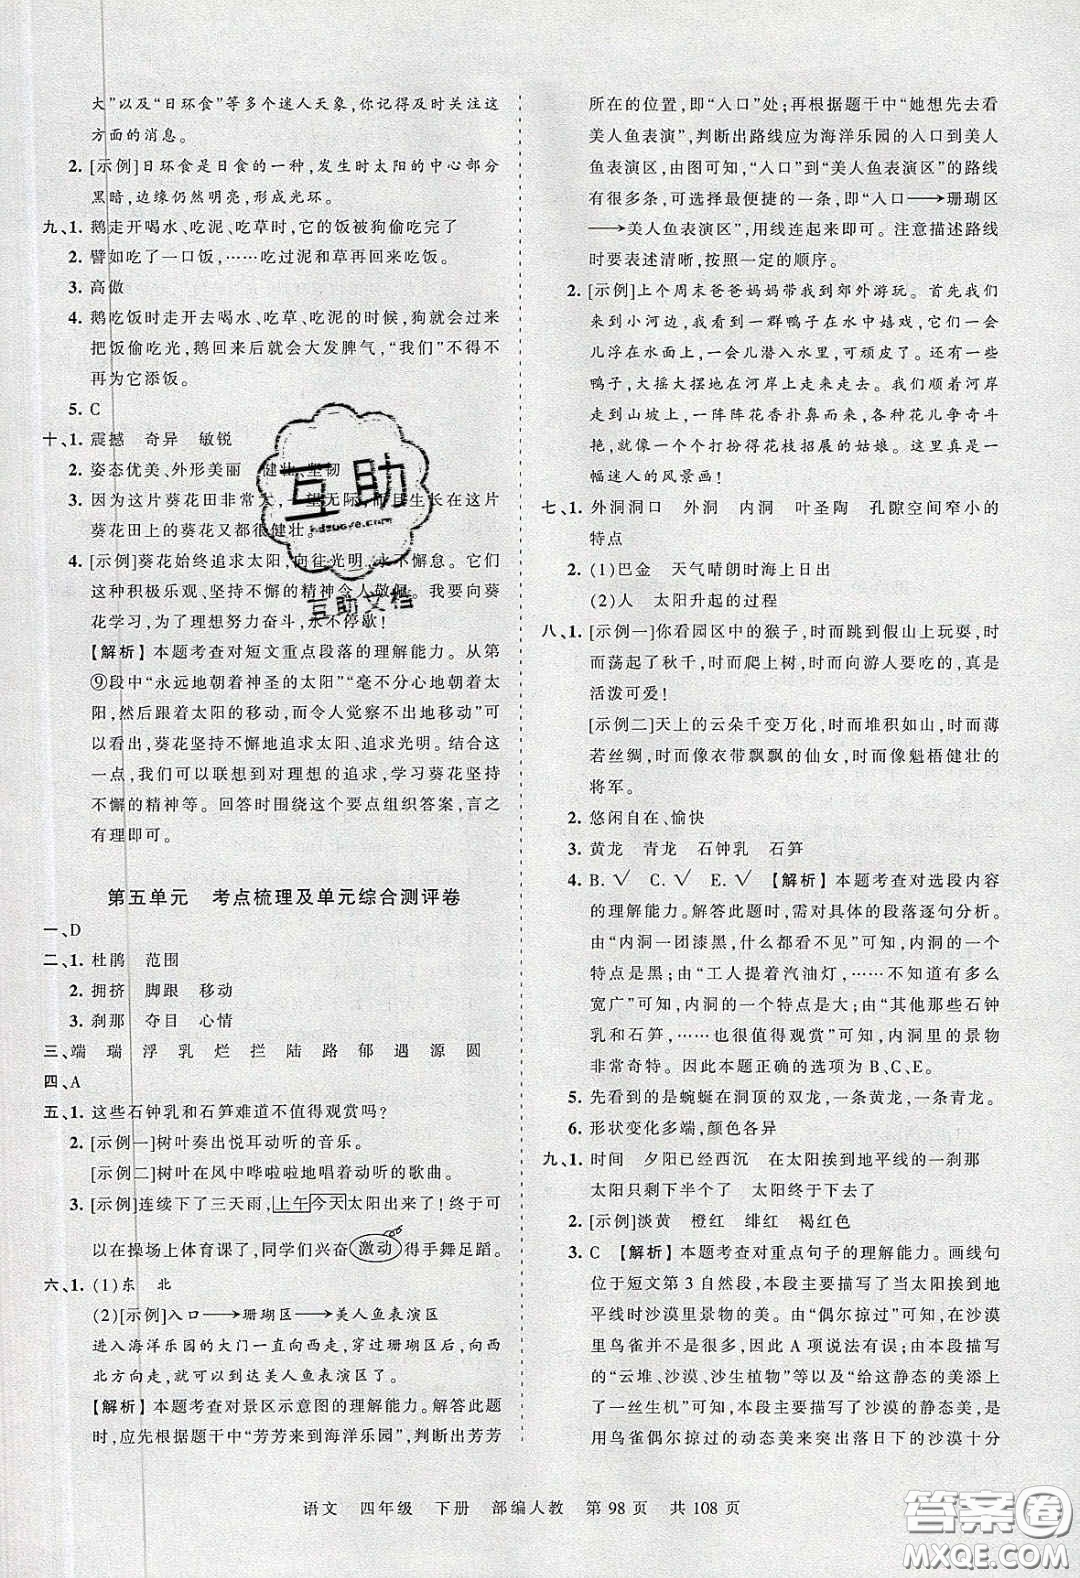 大”以及“日环食”等多个迷人天象,你记得及时关注这
方面的消息。
2. [示例]日环食是日食的一种,发生时太阳的中心部分
黑暗,边缘仍然明亮,形成光环。
九、1. 鹅走开喝水、吃泥、吃草时,它的饭被狗偷吃完了
2. 譬如吃了一口饭,……去吃过泥和草再回来吃饭。
3. 高傲
4. 鹅吃饭时走开去喝水、吃草、吃泥的时候,狗就会走来
把饭偷吃光,鹅回来后就会大发脾气,“我们”不得不
再为它添饭。
5. C
十、1. 震撼 奇异 敏锐
2. 姿态优美、外形美丽 健壮、坚韧
3. 因为这片葵花田非常大,一望无际,而且生长在这片
葵花田上的葵花又都很健壮。
4. [示例]葵花始终追求太阳,向往光明,永不懈怠。它
们这种积极乐观、坚持不懈的精神令人敬佩。我要向葵
花学习,为了理想努力奋斗,永不停歇!
【解析】本题考查对短文重点段落的理解能力。从第
⑨段中“永远地朝着神圣的太阳”“毫不分心地朝着太
阳,然后跟着太阳的移动,而令人觉察不出地移动”可
以看出,葵花坚持不懈地追求太阳、追求光明。结合这
一点,我们可以联想到对理想的追求,学习葵花坚持
不懈的精神等。回答时围绕这个要点组织答案,言之
有理即可。
第五单元 考点梳理及单元综合测评卷
一、D
二、1. 杜鹃 范围
2. 拥挤 脚跟 移动
3. 刹那 夺目 心情
三、端 瑞 浮 乳 烂 拦 陆 路 郁 遇 源 圆
四、A
五、1. 这些石钟乳和石笋难道不值得观赏吗?
2. [示例一]树叶奏出悦耳动听的音乐。
[示例二]树叶在风中哗啦啦地唱着动听的歌曲。
3. [示例]连续下了三天雨,上午今天太阳出来了!终于可
以在操场上体育课了,同学们兴奋激动得手舞足蹈。
六、1. (1)东 北
(2)[示例]入口→珊瑚区→美人鱼表演区
进入海洋乐园的大门一直向西走,穿过珊瑚区,再向西
北方向走,就可以到达美人鱼表演区了。
【解析】本题考查对景区示意图的理解能力。解答此题
时,应先根据题干中“芳芳来到海洋乐园”,判断出芳芳
所在的位置,即“入口”处;再根据题干中“她想先去看
美人鱼表演”,判断出路线应为海洋乐园的入口到美人
鱼表演区,由图可知,“入口”到“美人鱼表演区”的路线
有很多条,可选择最便捷的一条,即“入口→珊瑚区
→美人鱼表演区”,用线连起来即可。注意描述路线
时要表述清晰,按照一定的顺序。
2. [示例]上个周末爸爸妈妈带我到郊外游玩。首先我们
来到小河边,我看到一群鸭子在水中嬉戏,它们一会
儿浮在水面上,一会儿潜入水里,可顽皮了。还有一些
鸭子,大摇大摆地在河岸上走来走去。我们离开河岸
来到山坡上,一阵阵花香扑鼻而来,各种花儿争奇斗
艳,就像一个个打扮得花枝招展的姑娘。这里真是一
幅迷人的风景画!
七、1. 外洞洞口 外洞 内洞 叶圣陶 孔隙空间窄小的
特点
2. (1)巴金 天气晴朗时海上日出
(2)人 太阳升起的过程
八、1. [示例一]你看园区中的猴子,时而跳到假山上玩耍,时
而荡起了秋千,时而爬上树,时而向游人要吃的,真是
活泼可爱!
[示例二]天上的云朵千变万化,时而堆积如山,时而薄
若丝绸,时而像衣带飘飘的仙女,时而像魁梧健壮的
将军。
2. 悠闲自在、愉快
3. 黄龙 青龙 石钟乳 石笋
4. B. √ C. √ E. √ 【解析】本题考查对选段内容
的理解能力。解答此题时,要对具体的段落逐句分析。
由“内洞一团漆黑,什么都看不见”可知,内洞的一个
特点是黑;由“工人提着汽油灯,……不知道有多么
宽广”可知,内洞的一个特点是大;由“其他那些石钟
乳和石笋,……也很值得观赏”可知,内洞里的景物
非常奇特。因此本题正确的选项为B、C、E。
5. 先看到的是蜿蜒在洞顶的双龙,一条黄龙,一条青龙。
6. 形状变化多端,颜色各异
九、1. 时间 夕阳已经西沉 在太阳挨到地平线的一刹那
太阳只剩下半个了 太阳终于下去了
2. [示例]淡黄 橙红 绯红 褐红色
3. C 【解析】本题考查对重点句子的理解能力。画线句
位于短文第3自然段,本段主要描写了当太阳挨到地
平线时沙漠里景物的美。由“偶尔掠过”可知,在沙漠
里鸟雀并不是一直都有的,因此A项说法有误;由本段中
的“云堆、沙漠、沙生植物”等以及“给这静态的美添加
了一丝生机”可知,本段主要描写了沙漠的静态美,是
用鸟雀偶尔掠过的动态美来突出落日下的沙漠十分
语文 四年级 下册 部编人教 第98页 共108页
互助
hdzuoye.com
互助文档
答案圈
MXQE.COM